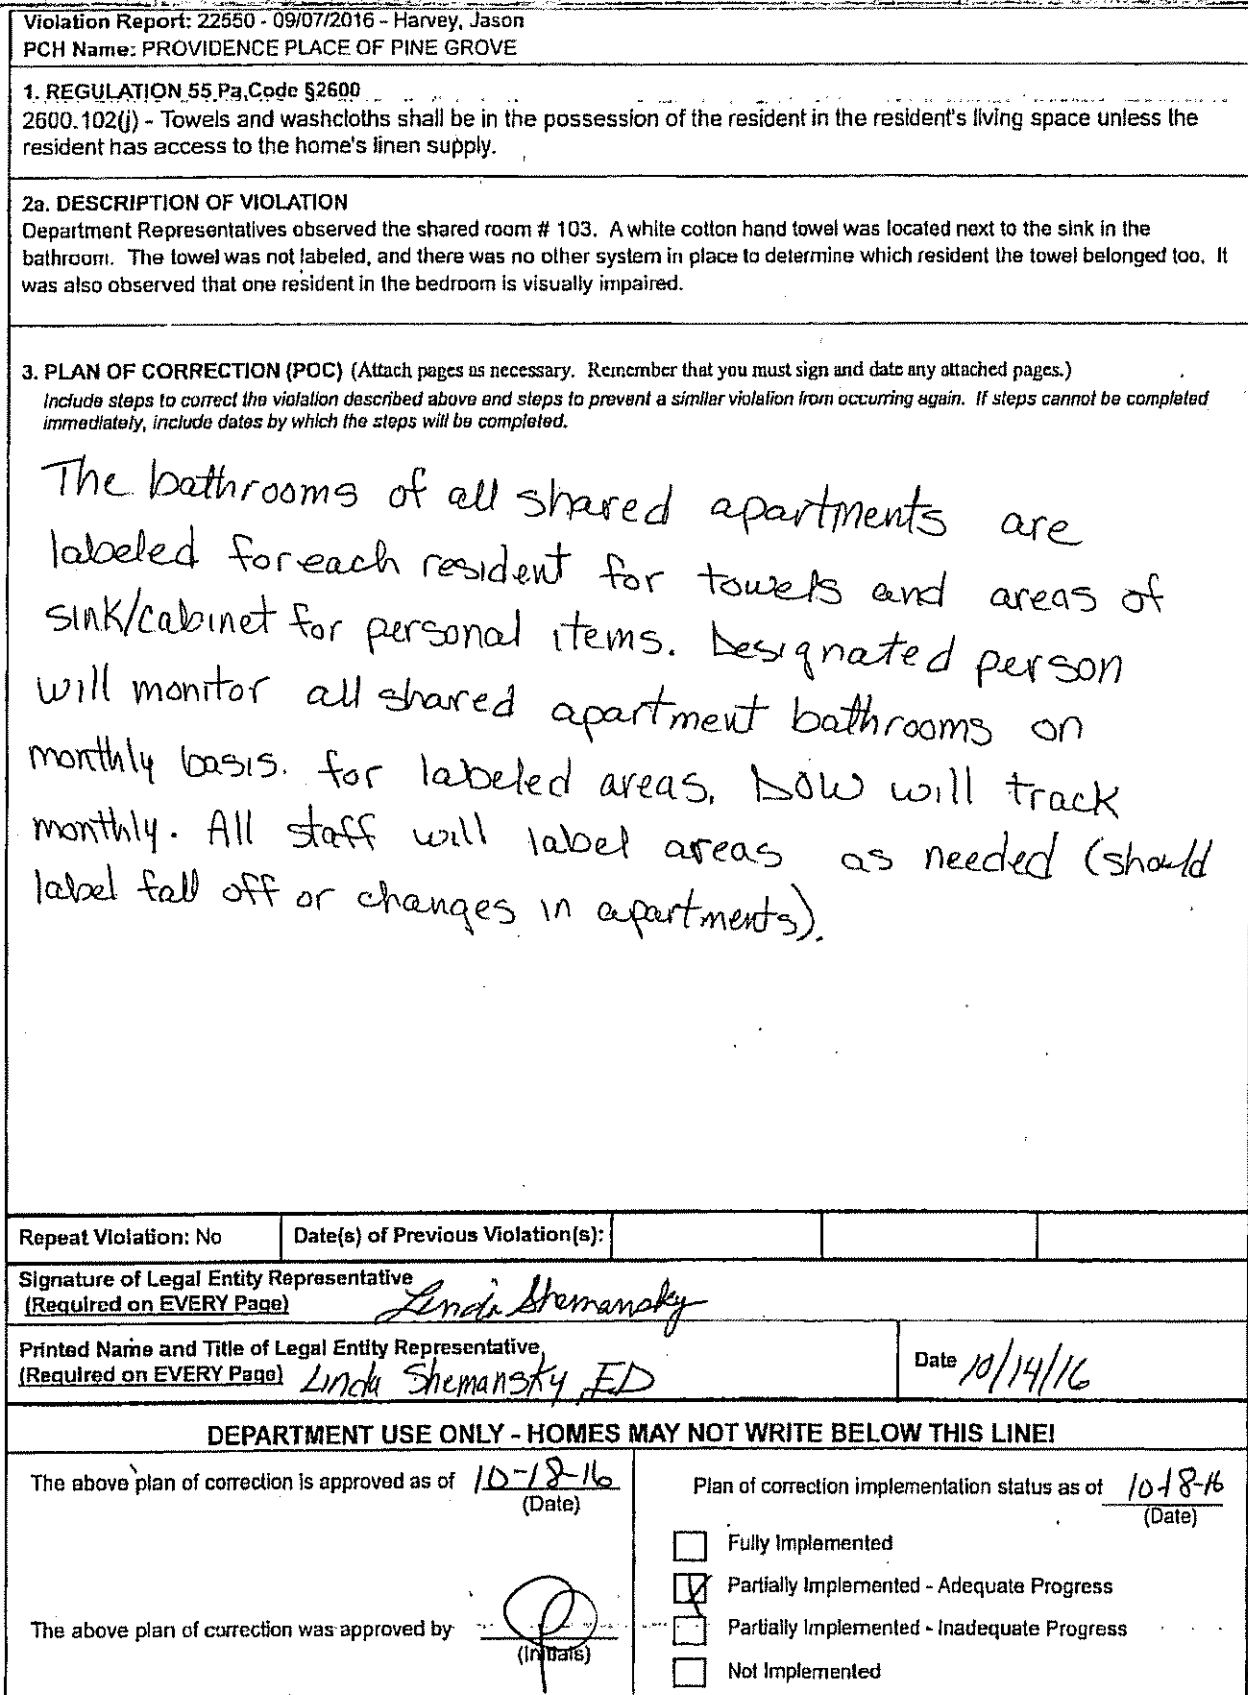 Violation Report: 22550 - 09/07/2016 - Harvey, Jason
PCH Name: PROVIDENCE PLACE OF PINE GROVE
1. REGULATION 55 Pa.Code §2600
2600.102(j) - Towels and washcloths shall be in the possession of the resident in the resident's living space unless the
resident has access to the home's linen supply.
2a. DESCRIPTION OF VIOLATION
Department Representatives observed the shared room # 103. A white cotton hand towel was located next to the sink in the
bathroom. The towel was not labeled, and there was no other system in place to determine which resident the towel belonged too. It
was also observed that one resident in the bedroom is visually impaired.
3. PLAN OF CORRECTION (POC) (Attach pages as necessary. Remember that you must sign and date any attached pages.)
Include steps to correct the violation described above and steps to prevent a similar violation from occurring again. If steps cannot be completed
immediately, include dates by which the steps will be completed.
The bathrooms of all shared apartments are
labeled for each resident for towels and areas of
sink/cabinet for personal items. Designated person
will monitor all shared apartment bathrooms on
monthly basis. for labeled areas. DOW will track
monthly. All staff will label areas as needed (should
label fall off or changes in apartments).
Repeat Violation: No Date(s) of Previous Violation(s):
Signature of Legal Entity Representative
(Required on EVERY Page) Linda Shemansky
Printed Name and Title of Legal Entity Representative
(Required on EVERY Page) Linda Shemansky, ED Date 10/14/16
DEPARTMENT USE ONLY - HOMES MAY NOT WRITE BELOW THIS LINE!
The above plan of correction is approved as of 10-18-16
(Date)
The above plan of correction was approved by
(Initials)
Plan of correction implementation status as of 10-18-16
(Date)
Fully Implemented
Partially Implemented - Adequate Progress
Partially Implemented - Inadequate Progress
Not Implemented